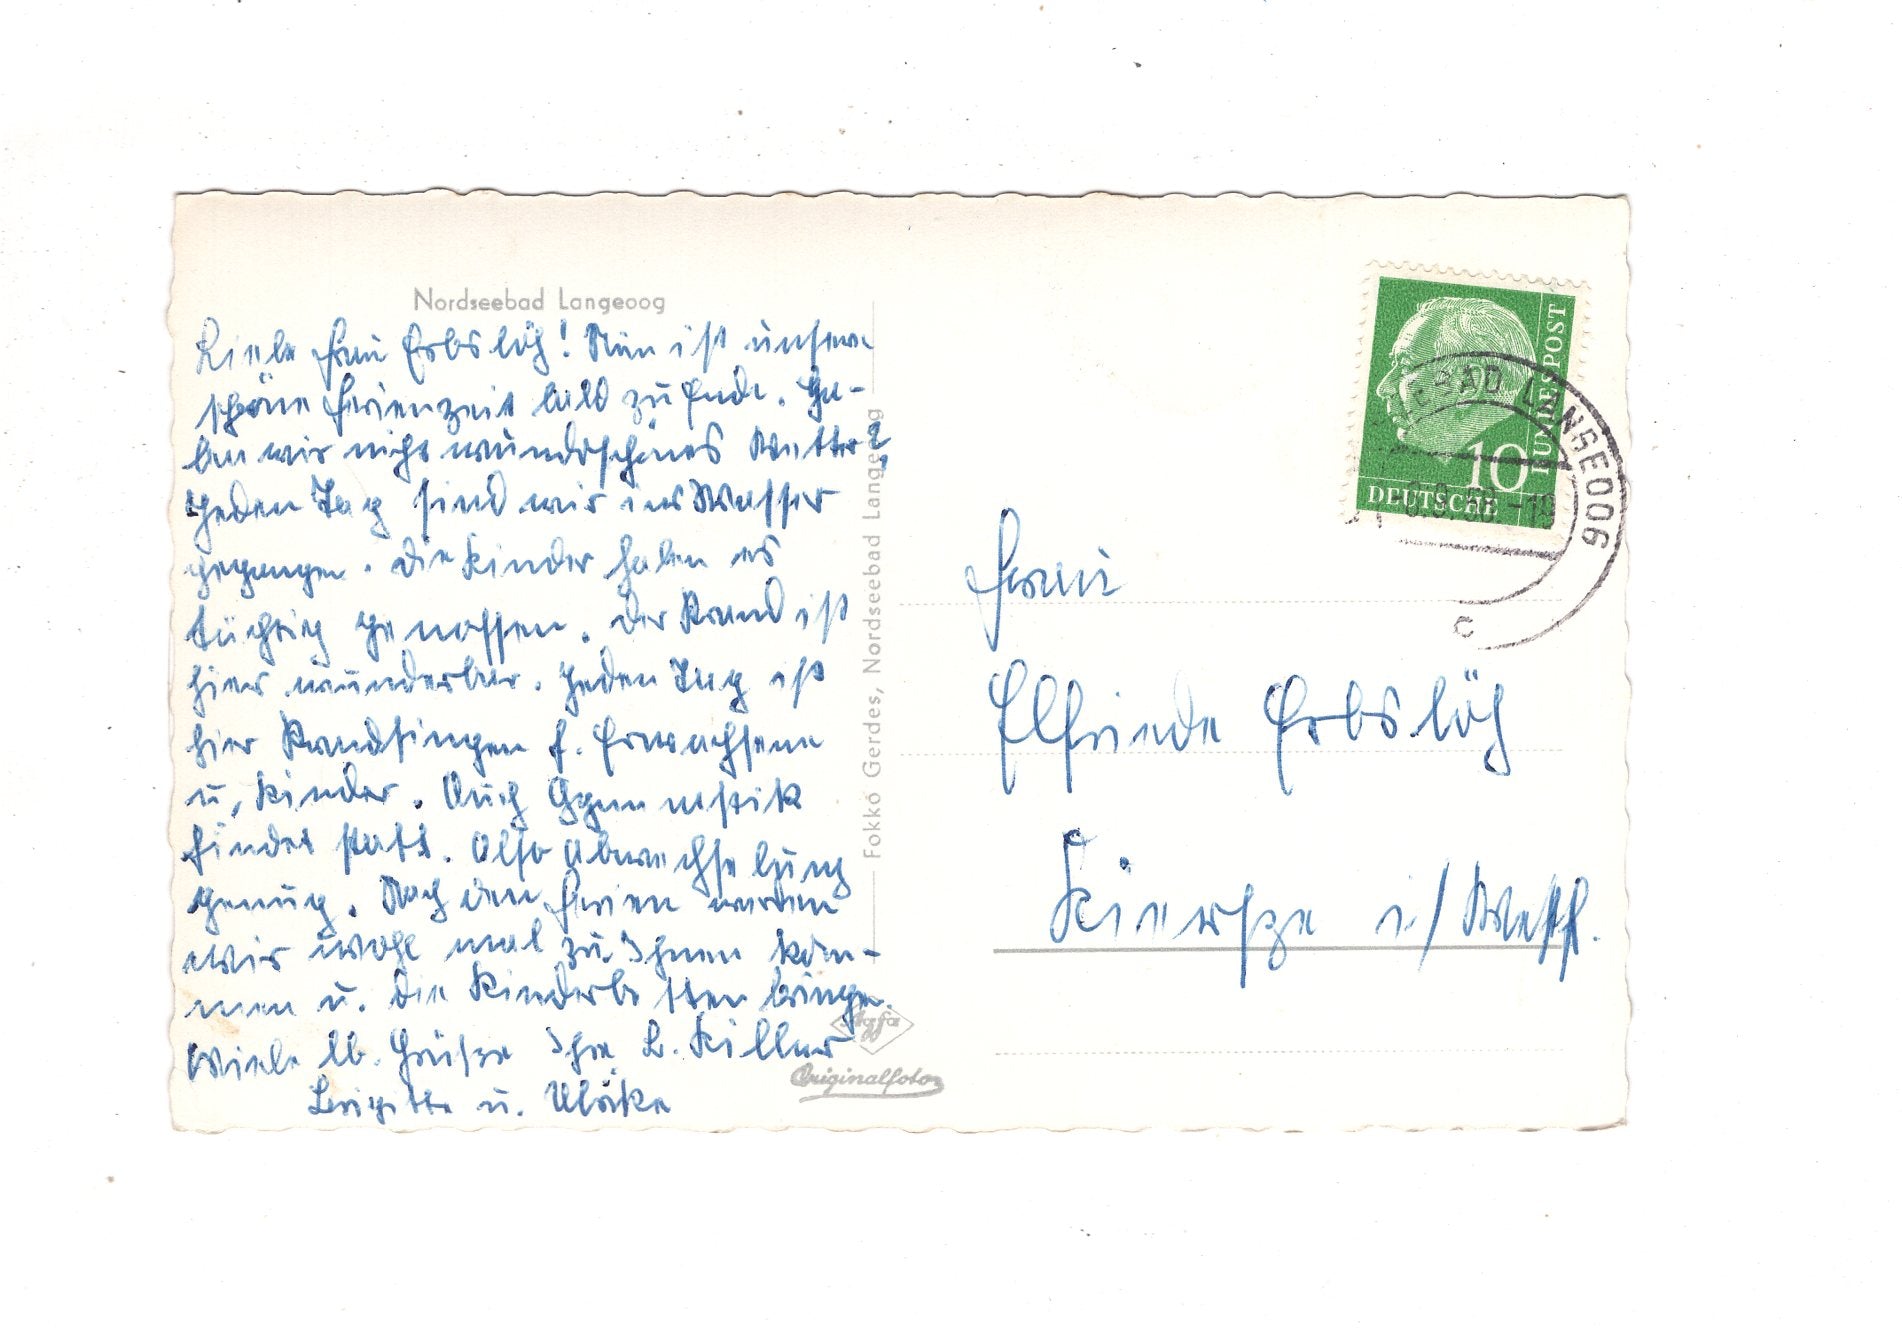 Nordseebad Langeoog
Liebe Frau Erbslöh! Nun ist unsere
schöne Ferienzeit bald zu Ende. Ha-
ben wir nicht wunderschönes Wetter?
Jeden Tag sind wir ins Wasser
gegangen. Die Kinder haben es
tüchtig genossen. Der Strand ist
hier wunderbar. Jeden Tag ist
hier Strandsingen f. Erwachsene
u. Kinder. Auch Gymnastik
findet statt. Also Abwechselung
genug. Nach den Ferien werden
wir wohl mal zu Ihnen kom-
men u. die Kinderbetten bringen.
Viele lb. Grüße Ihre B. Killer
Brigitte u. Ulrike
Fokko Gerdes, Nordseebad Langeoog
Agfa
Originalfoto
DEUTSCHE
BUNDESPOST
10
SEEBAD LANGEOOG
c
Frau
Elfriede Erbslöh
Kierspe i/Westf.